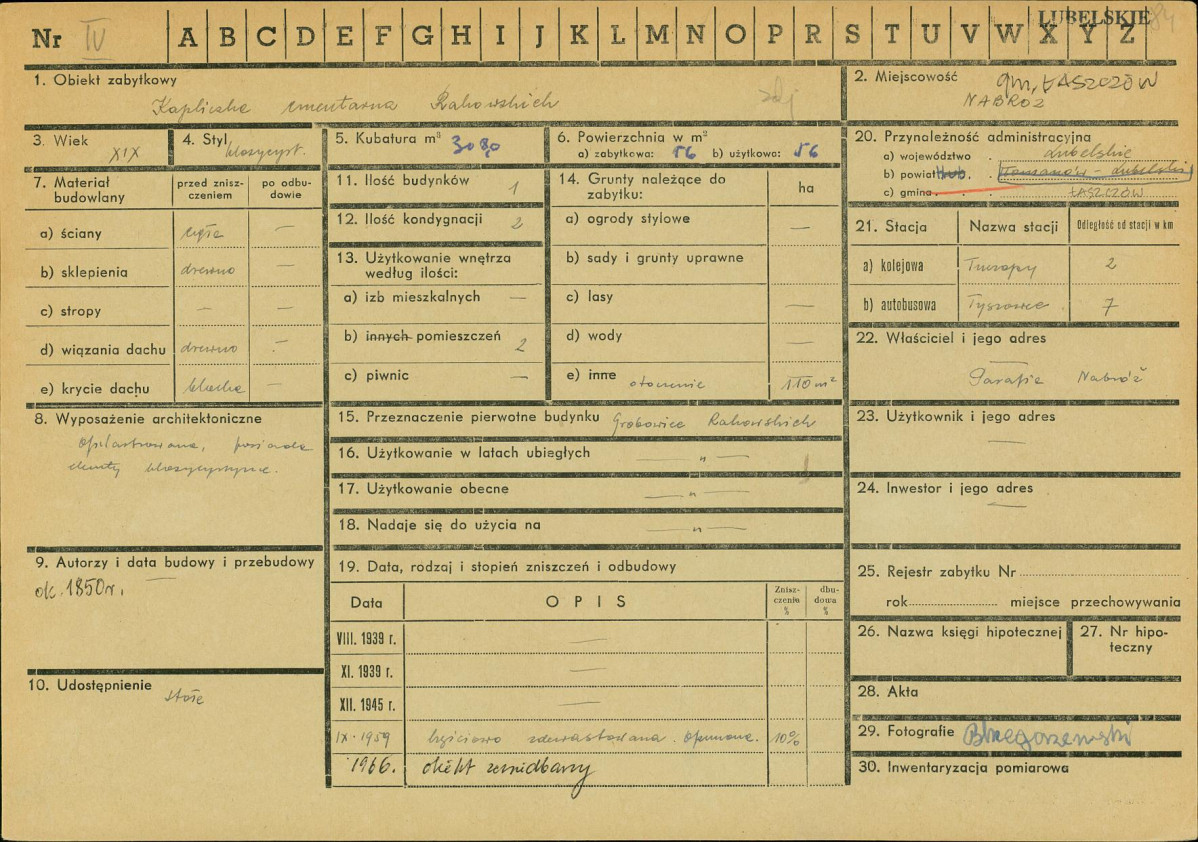 LUBELSKIE
Nr IV A B C D E F G H I J K L M N O P R S T U V W X Y Z
1. Obiekt zabytkowy
Kapliczka cmentarna Rakowskich
zdj
2. Miejscowość gm, ŁASZCZÓW
NABRÓŻ
3. Wiek XIX
4. Styl klasycyst.
5. Kubatura m³
6. Powierzchnia w m²
a) zabytkowa: 56 b) użytkowa: 56
7. Materiał budowlany
przed zniszczeniem
po odbudowie
a) ściany cegła —
b) sklepienia drewno —
c) stropy — —
d) wiązania dachu drewno —
e) krycie dachu blacha —
8. Wyposażenie architektoniczne
opilastrowana, posiada
elementy klasycystyczne.
9. Autorzy i data budowy i przebudowy
ok. 1850 r. —
10. Udostępnienie stałe
11. Ilość budynków 1
12. Ilość kondygnacji 2
13. Użytkowanie wnętrza
według ilości:
a) izb mieszkalnych —
b) innych pomieszczeń 2
c) piwnic —
14. Grunty należące do
zabytku:
ha
a) ogrody stylowe —
b) sady i grunty uprawne
c) lasy —
d) wody —
e) inne otoczenie 110 m²
15. Przeznaczenie pierwotne budynku Grobowiec Rakowskich
16. Użytkowanie w latach ubiegłych — „ —
17. Użytkowanie obecne — „ —
18. Nadaje się do użycia na — „ —
19. Data, rodzaj i stopień zniszczeń i odbudowy
Data
OPIS
Zniszczenia %
dbudowa %
VIII. 1939 r. —
XI. 1939 r. —
XII. 1945 r. —
IX. 1959 częściowo zdewastowana. 10%
1966. obiekt zaniedbany
20. Przynależność administracyjna
a) województwo Lubelskie
b) powiat Hrub. Tomaszów - Lubelski
c) gmina ŁASZCZÓW
21. Stacja
Nazwa stacji
Odległość od stacji w km
a) kolejowa Turzopy 2
b) autobusowa Tyszowce 7
22. Właściciel i jego adres
Parafia Nabróż
23. Użytkownik i jego adres
—
24. Inwestor i jego adres
—
25. Rejestr zabytku Nr
rok miejsce przechowywania
26. Nazwa księgi hipotecznej
27. Nr hipoteczny
28. Akta
29. Fotografie
30. Inwentaryzacja pomiarowa